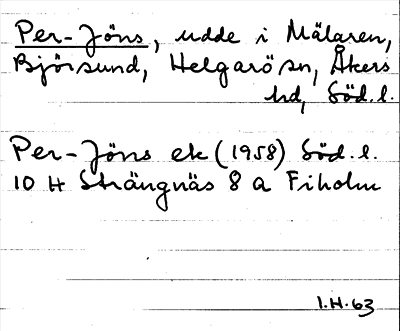 Per-Jöns, udde i Mälaren,
Björsund, Helgarö sn, Åkers
hd, Söd.l.
Per-Jöns ek (1958) Söd.l.
10 H Strängnäs 8 a Fiholm
I.H. 63